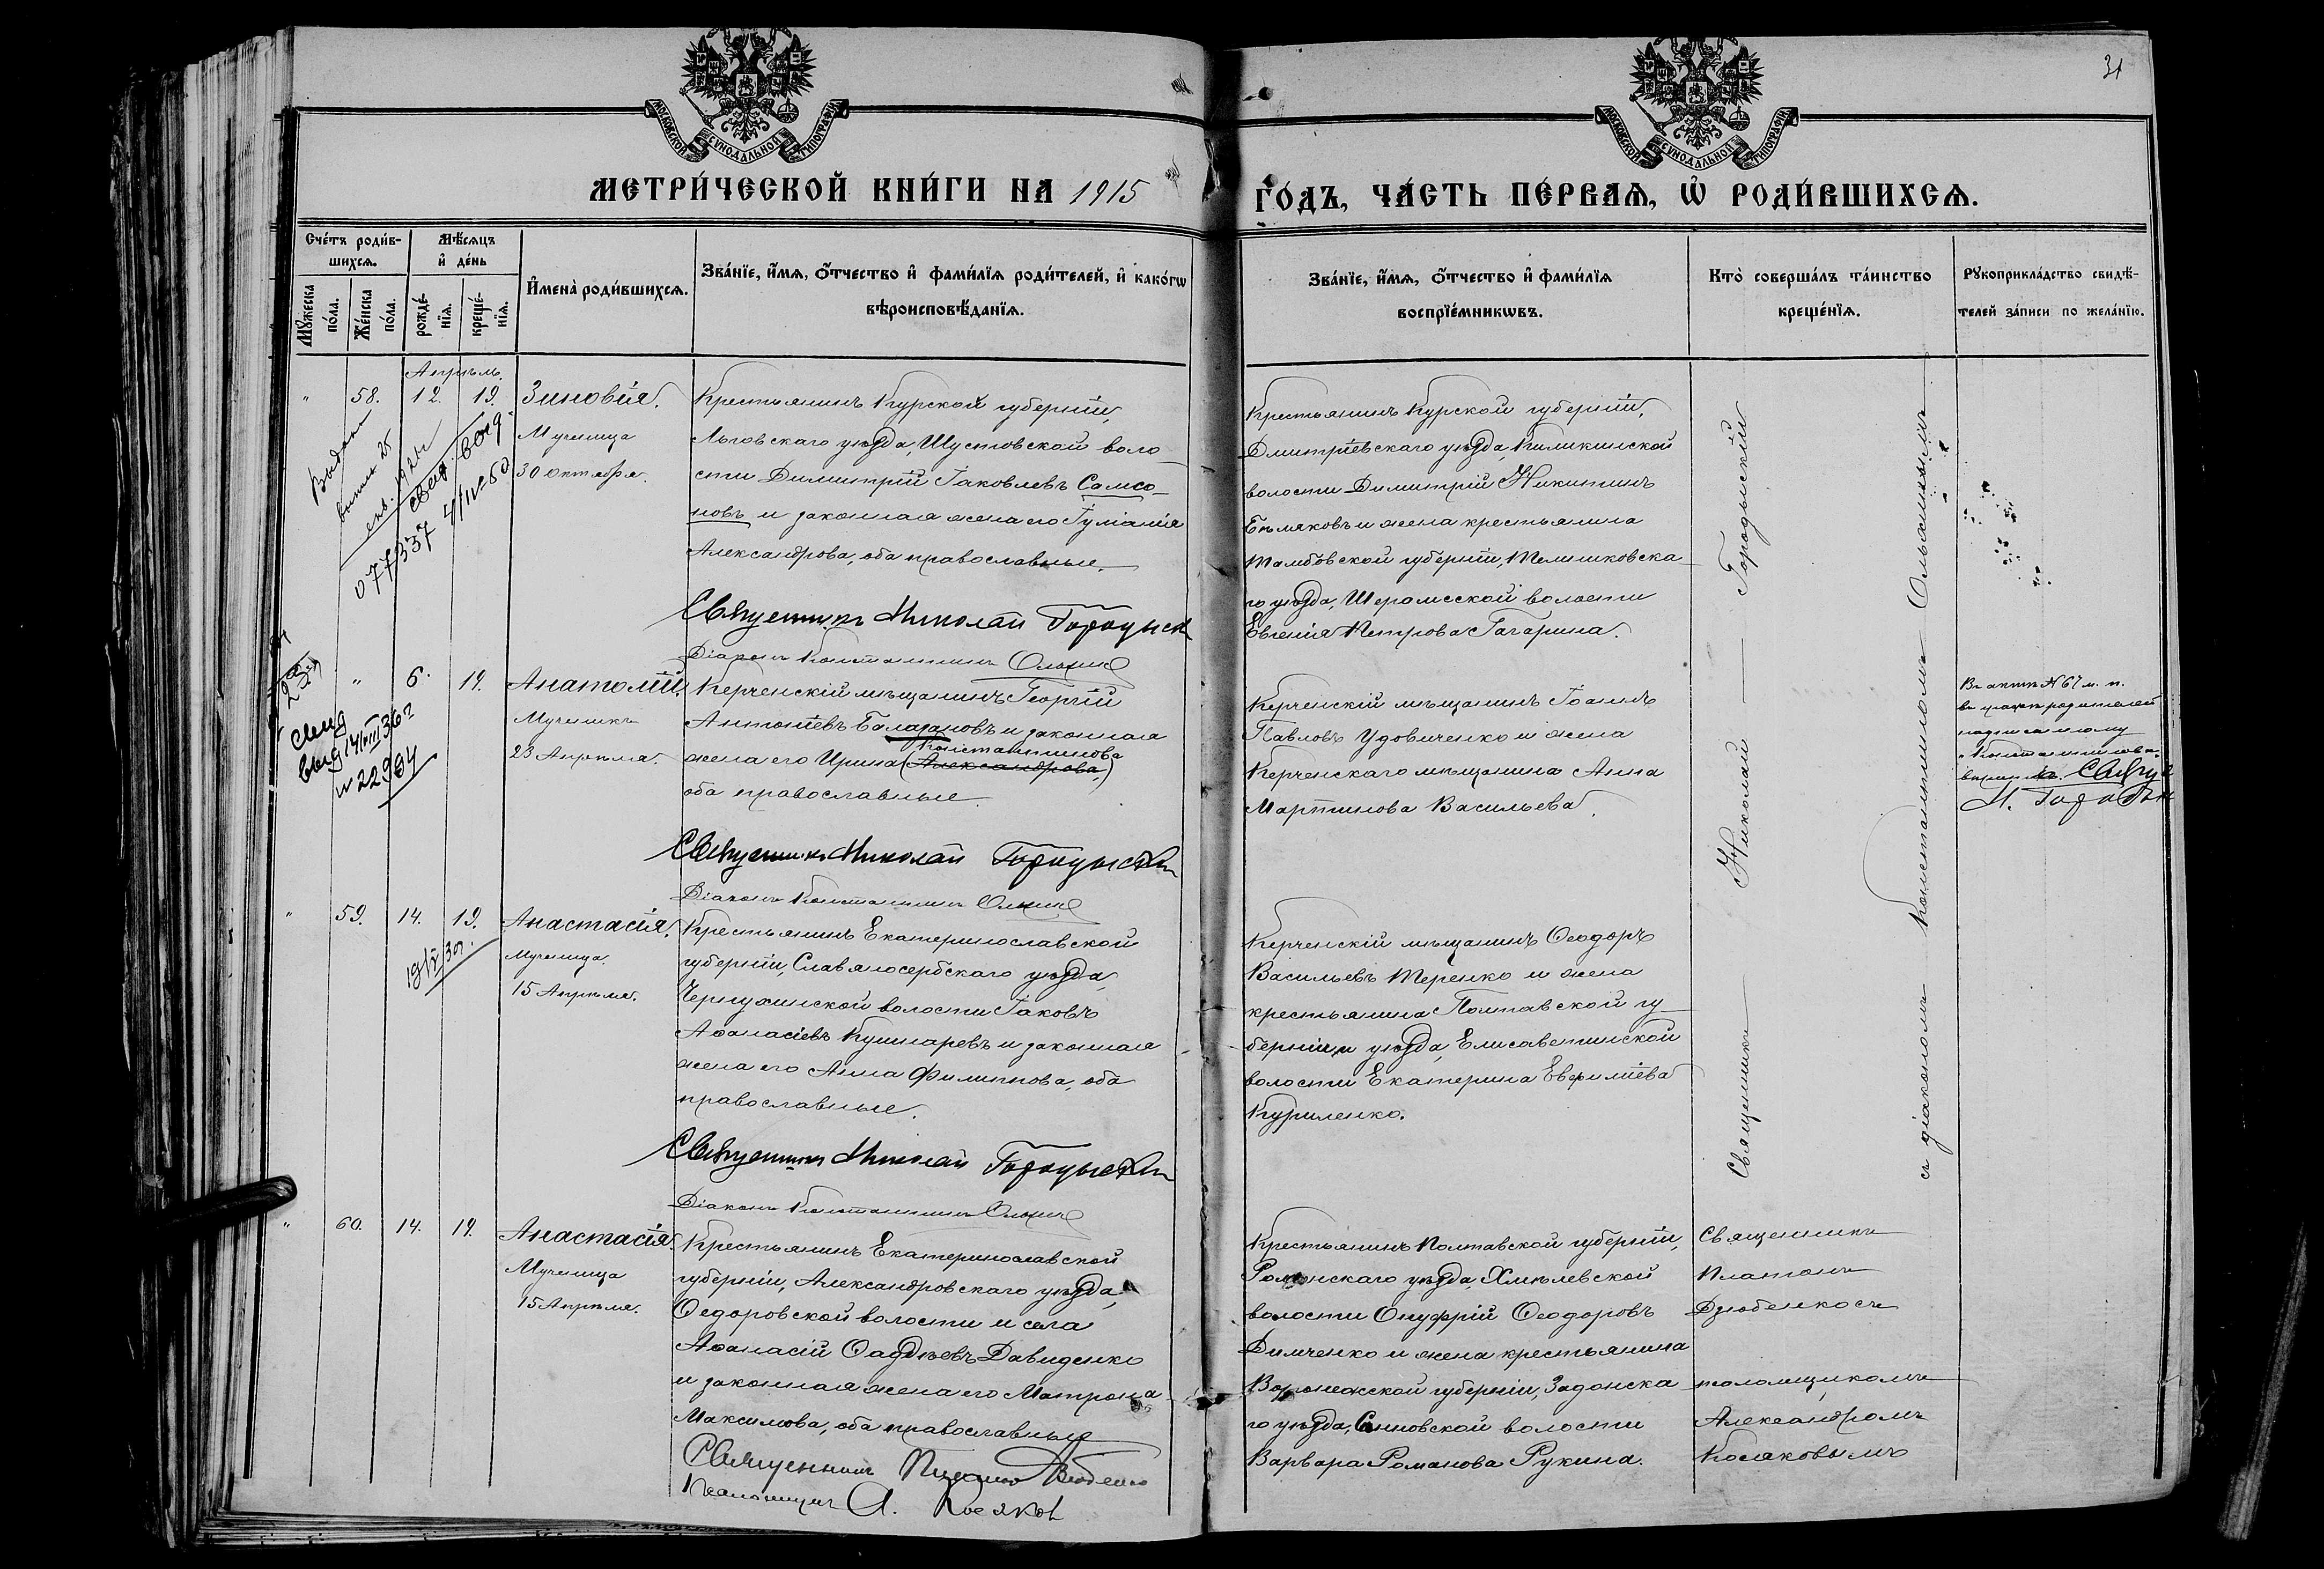 31
МОСКОВСКОЙ СУНОДАЛЬНОЙ ТИПОГРАФІИ
МОСКОВСКОЙ СУНОДАЛЬНОЙ ТИПОГРАФІИ
МЕТРИ́ЧЕСКОЙ КНИ́ГИ НА 1915
ГО́ДЪ, ЧА́СТЬ ПЕ́РВАѦ, Ѡ҆ РОДИ́ВШИХСѦ.
Сче́тъ роди́в-
шихсѧ.
Мꙋ́жеска
по́ла.
Же́нска
по́ла.
Мѣ́сѧцъ
и҆ де́нь
рожде́-
нїѧ.
креще́-
нїѧ.
И҆мена̀ роди́вшихсѧ.
Зва́нїе, и҆́мѧ, ѻ҆́тчество и҆ фами́лїѧ роди́телей, и҆ како́гѡ
вѣроисповѣ́данїѧ.
Зва́нїе, и҆́мѧ, ѻ҆́тчество и҆ фами́лїѧ
воспрїе́мникѡвъ.
Кто̀ соверша́лъ та́инство
креще́нїѧ.
Рꙋкоприкла́дство свидѣ́-
телей за́писи по жела́нїю.
Апрѣль.
" 58. 12. 19.
Зиновія.
Мученица
30 октября.
Выдана
077337
Крестьянинъ Курской губерніи,
Льговскаго уѣзда, Шустовской воло-
сти Димитрій Іаковлевъ Самсо-
новъ и законная жена его Іуліанія
Александрова, оба православные.
Священникъ Николай Городыск
Діаконъ Константинъ
Крестьянинъ Курской губерніи,
Дмитріевскаго уѣзда,
волости Димитрій Никитинъ
Бѣляковъ и жена крестьянина
Тамбовской губерніи, Темниковска-
го уѣзда, волости
Евгенія Петрова Гагарина.
" 6. 19.
Анатолій.
Мученикъ
23 Апрѣля.
выд 14/VIII 36 г
N 22964
Керченскій мѣщанинъ Георгій
Антоніевъ Балагановъ и законная
Константинова
жена его Ирина (Александрова,)
оба православные.
Священникъ Николай Городыскій
Діаконъ Константинъ
Керченскій мѣщанинъ Іоаннъ
Павловъ Удовиченко и жена
Керченскаго мѣщанина Анна
Мартинова Васильева.
Въ актѣ № 67 м. п.
въ графѣ родителей
надписанному
"Константинова"
вѣрить. Свящ
Н. Городыск
" 59. 14. 19.
Анастасія.
Мученица.
15 Апрѣля.
Крестьянинъ Екатеринославской
губерніи, Славяносербскаго уѣзда,
Чернухинской волости Іаковъ
Аѳанасіевъ Кушнаревъ и законная
жена его Анна Филиппова, оба
православные.
Священникъ Николай Городыскій
Діаконъ Константинъ
Керченскій мѣщанинъ Ѳеодоръ
Васильевъ Теренко и жена
крестьянина Полтавской гу-
берніи и уѣзда, Елисаветинской
волости Екатерина Евфиміева
Куриленко.
Священникъ — Николай — Городыскій
съ діакономъ Константиномъ
" 60. 14. 19.
Анастасія.
Мученица
15 Апрѣля.
Крестьянинъ Екатеринославской
губерніи, Александровскаго уѣзда,
Ѳедоровской волости и села
Аѳанасій Ѳаддѣевъ Давиденко
и законная жена его Матрона
Максимова, оба православные
Священникъ Платонъ Дзюбенко
Псаломщикъ А. Косяковъ
Крестьянинъ Полтавской губерніи,
Роменскаго уѣзда, Хмѣлевской
волости Онуфрій Ѳеодоровъ
Димченко и жена крестьянина
Воронежской губерніи, Задонска-
го уѣзда, волости
Варвара Романова Рукина.
Священникъ
Платонъ
Дзюбенко съ
псаломщикомъ
Александромъ
Косяковымъ